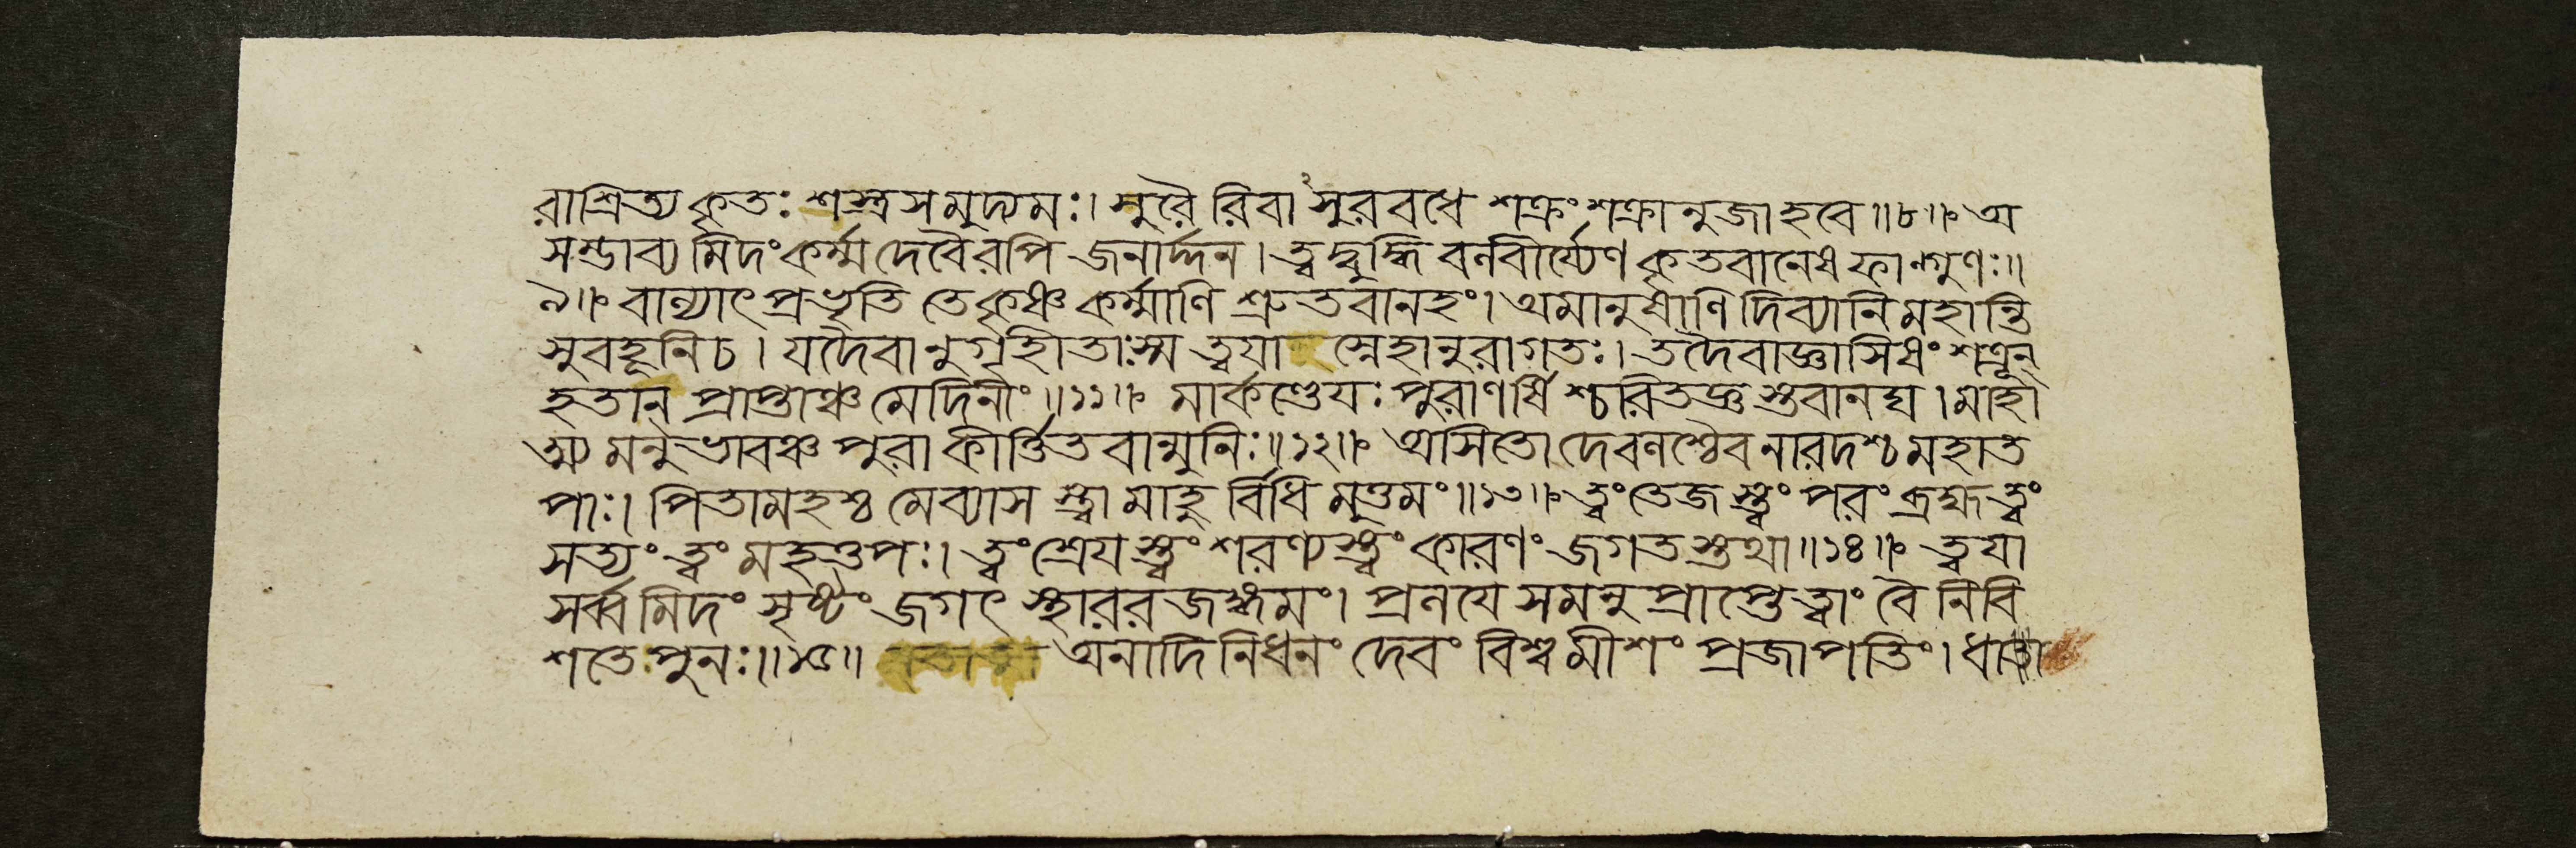 রাশ্রিত্য কৃতঃ শস্ত্রসমুদ্যমঃ। সুরৈ রিবা সুরবধে শক্রং শক্রানুজাহবে॥৮॥ঃ অ
সম্ভাব্য মিদং কর্ম্ম দেবৈরপি জনার্দ্দন। ত্বদ্বুদ্ধি বলবীর্য্যেণ কৃতবানেষ ফাল্গুণঃ॥
৯॥ঃ বাল্যাৎ প্রভৃতি তে কৃষ্ণ কর্ম্মাণি শ্রুতবানহং। অমানুষাণি দিব্যানি মহান্তি
সুবহূনি চ। যদৈবানুগৃহীতাঃস্ম ত্বযা স্নেহানুরাগতঃ। তদৈবাজ্ঞাসিষং শত্রূন্
হতান্ প্রাপ্তাঞ্চ মেদিনীং॥১১॥ঃ মার্কণ্ডেযঃ পুরাণর্ষি শ্চরিতজ্ঞ স্তবানঘ। মাহা
ত্ম্য মনুভাবঞ্চ পুরা কীর্ত্তিতবান্মুনিঃ॥১২॥ঃ অসিতো দেবলশ্চৈব নারদশ্চ মহাত
পাঃ। পিতামহশ্চ মে ব্যাস স্ত্বামাহু র্বিধি মুত্তমং॥১৩॥ঃ ত্বং তেজ স্ত্বং পরং ব্রহ্ম ত্বং
সত্যং ত্বং মহত্তপঃ। ত্বং শ্রেয স্ত্বং শরণ্য স্ত্বং কারণং জগত স্তথা॥১৪॥ঃ ত্বযা
সর্ব্ব মিদং সৃষ্টং জগৎ স্থাবর জঙ্গমং। প্রলযে সমনুপ্রাপ্তে ত্বাং বৈ নিবি
শতে পুনঃ॥১৫॥ অনাদি নিধনং দেবং বিশ্ব মীশং প্রজাপতিং। ধাতা